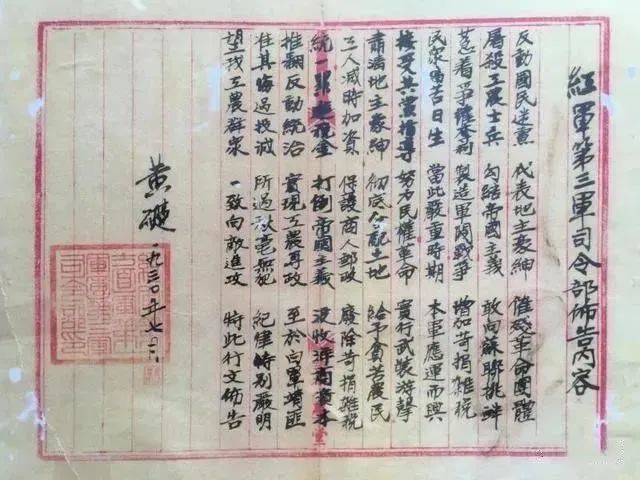 紅軍第三軍司令部佈告內容
反動國民黨 代表地主豪紳 催殘革命團體
屠殺工農士兵 勾結帝國主義 敢向蘇聯挑衅
惹着爭權奪利 製造軍閥戰爭 增加苛捐雜稅
民眾痛苦日生 當此嚴重時期 本軍應運而興
接受共黨指導 努力民權革命 實行武裝游擊
肅清地主豪紳 彻底分配土地 給予貧苦農民
工人減時加資 保護商人郵政 廢除苛捐雜稅
統一累進稅金 打倒帝國主義 沒收洋商資本
推翻反動統治 實現工農專政 至於白軍靖匪
准其悔過投誠 所過秋毫無犯 紀律特別嚴明
望我工農群眾 一致向敵進攻 特此行文佈告
黃礎 一九三〇年七